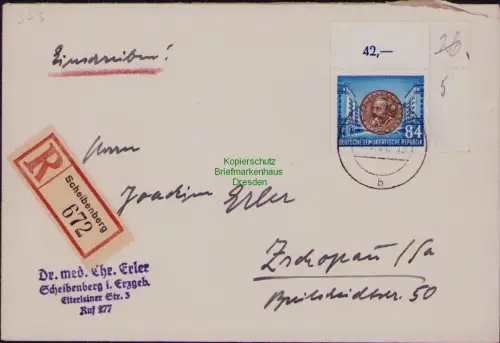 Einschreiben!
42,–
5
84
DEUTSCHE DEMOKRATISCHE REPUBLIK
b
R
Scheibenberg
672
Herrn
Joachim Erler
Zschopau /Sa
50
Kopierschutz
Briefmarkenhaus
Dresden
Dr. med. Chr. Erler
Scheibenberg i. Erzgeb.
Elterleiner Str. 3
Ruf 277